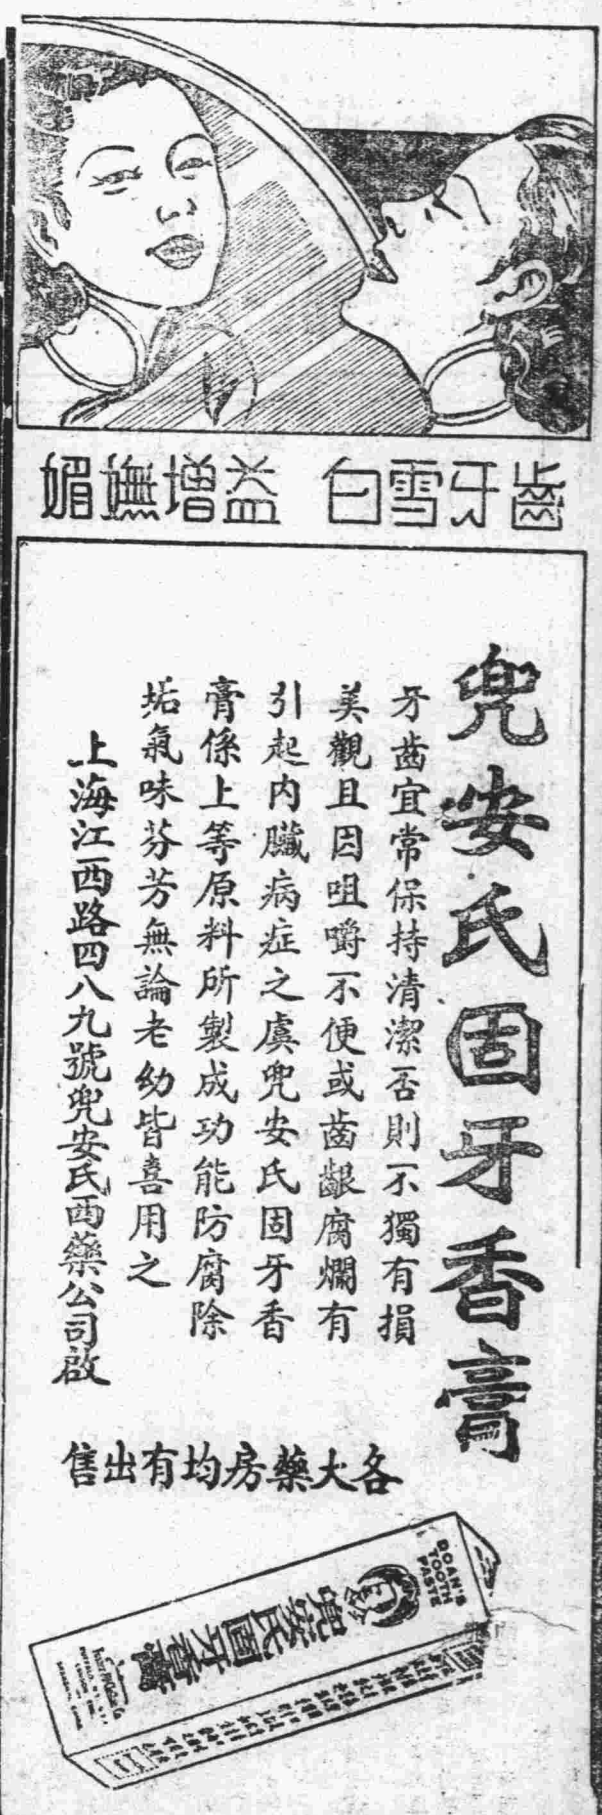 齒牙雪白 益增嫵媚
兜安氏固牙香膏
牙齒宜常保持清潔否則不獨有損
美觀且因咀嚼不便或齒齦腐爛有
引起內臟病症之虞兜安氏固牙香
膏係上等原料所製成功能防腐除
垢氣味芬芳無論老幼皆喜用之
上海江西路四八九號兜安氏西藥公司啟
各大藥房均有出售
DOAN'S
TOOTH
PASTE
兜安氏固牙香膏